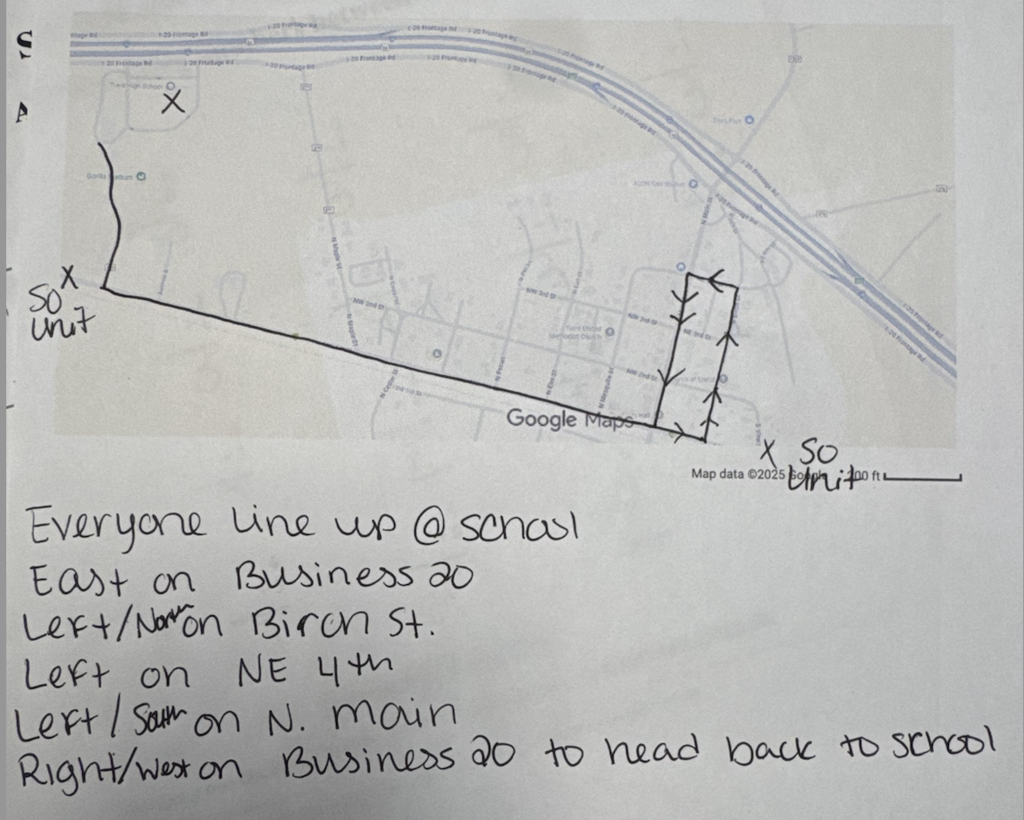 S
A
I-20 Frontage Rd
I-20 Frontage Rd
I-20 Frontage Rd
I-20 Frontage Rd
I-20 Frontage Rd
I-20 Frontage Rd
I-20 Frontage Rd
I-20 Frontage Rd
X
N Maple St
NW 3rd St
NW 2nd St
N Maple St
NE 3rd St
NW 2nd St
N Pecan
N Elm St
N Mesquite St
N Cedar St
X
SO
Unit
Google Maps
X SO
Unit
Map data ©2025 Google 200 ft
Everyone Line up @ school
East on Business 20
Left/North on Birch St.
Left on NE 4th
Left / South on N. Main
Right/West on Business 20 to head back to school